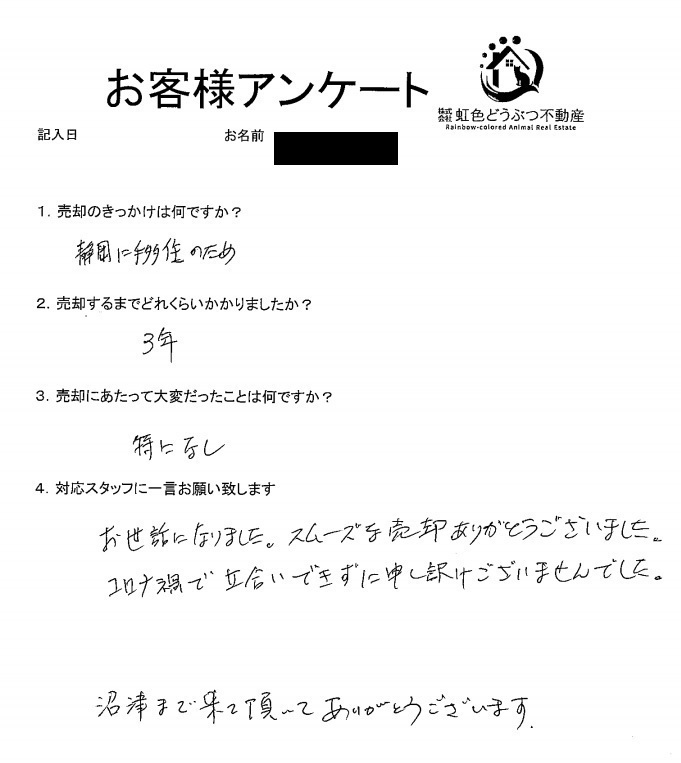 お客様アンケート
株式会社 虹色どうぶつ不動産
Rainbow-colored Animal Real Estate
記入日 お名前
1. 売却のきっかけは何ですか？
静岡に移住のため
2. 売却するまでどれくらいかかりましたか？
3年
3. 売却にあたって大変だったことは何ですか？
特になし
4. 対応スタッフに一言お願い致します
お世話になりました。スムーズな売却ありがとうございました。
コロナ禍で立合いできずに申し訳けございませんでした。
沼津まで来て頂いてありがとうございます.